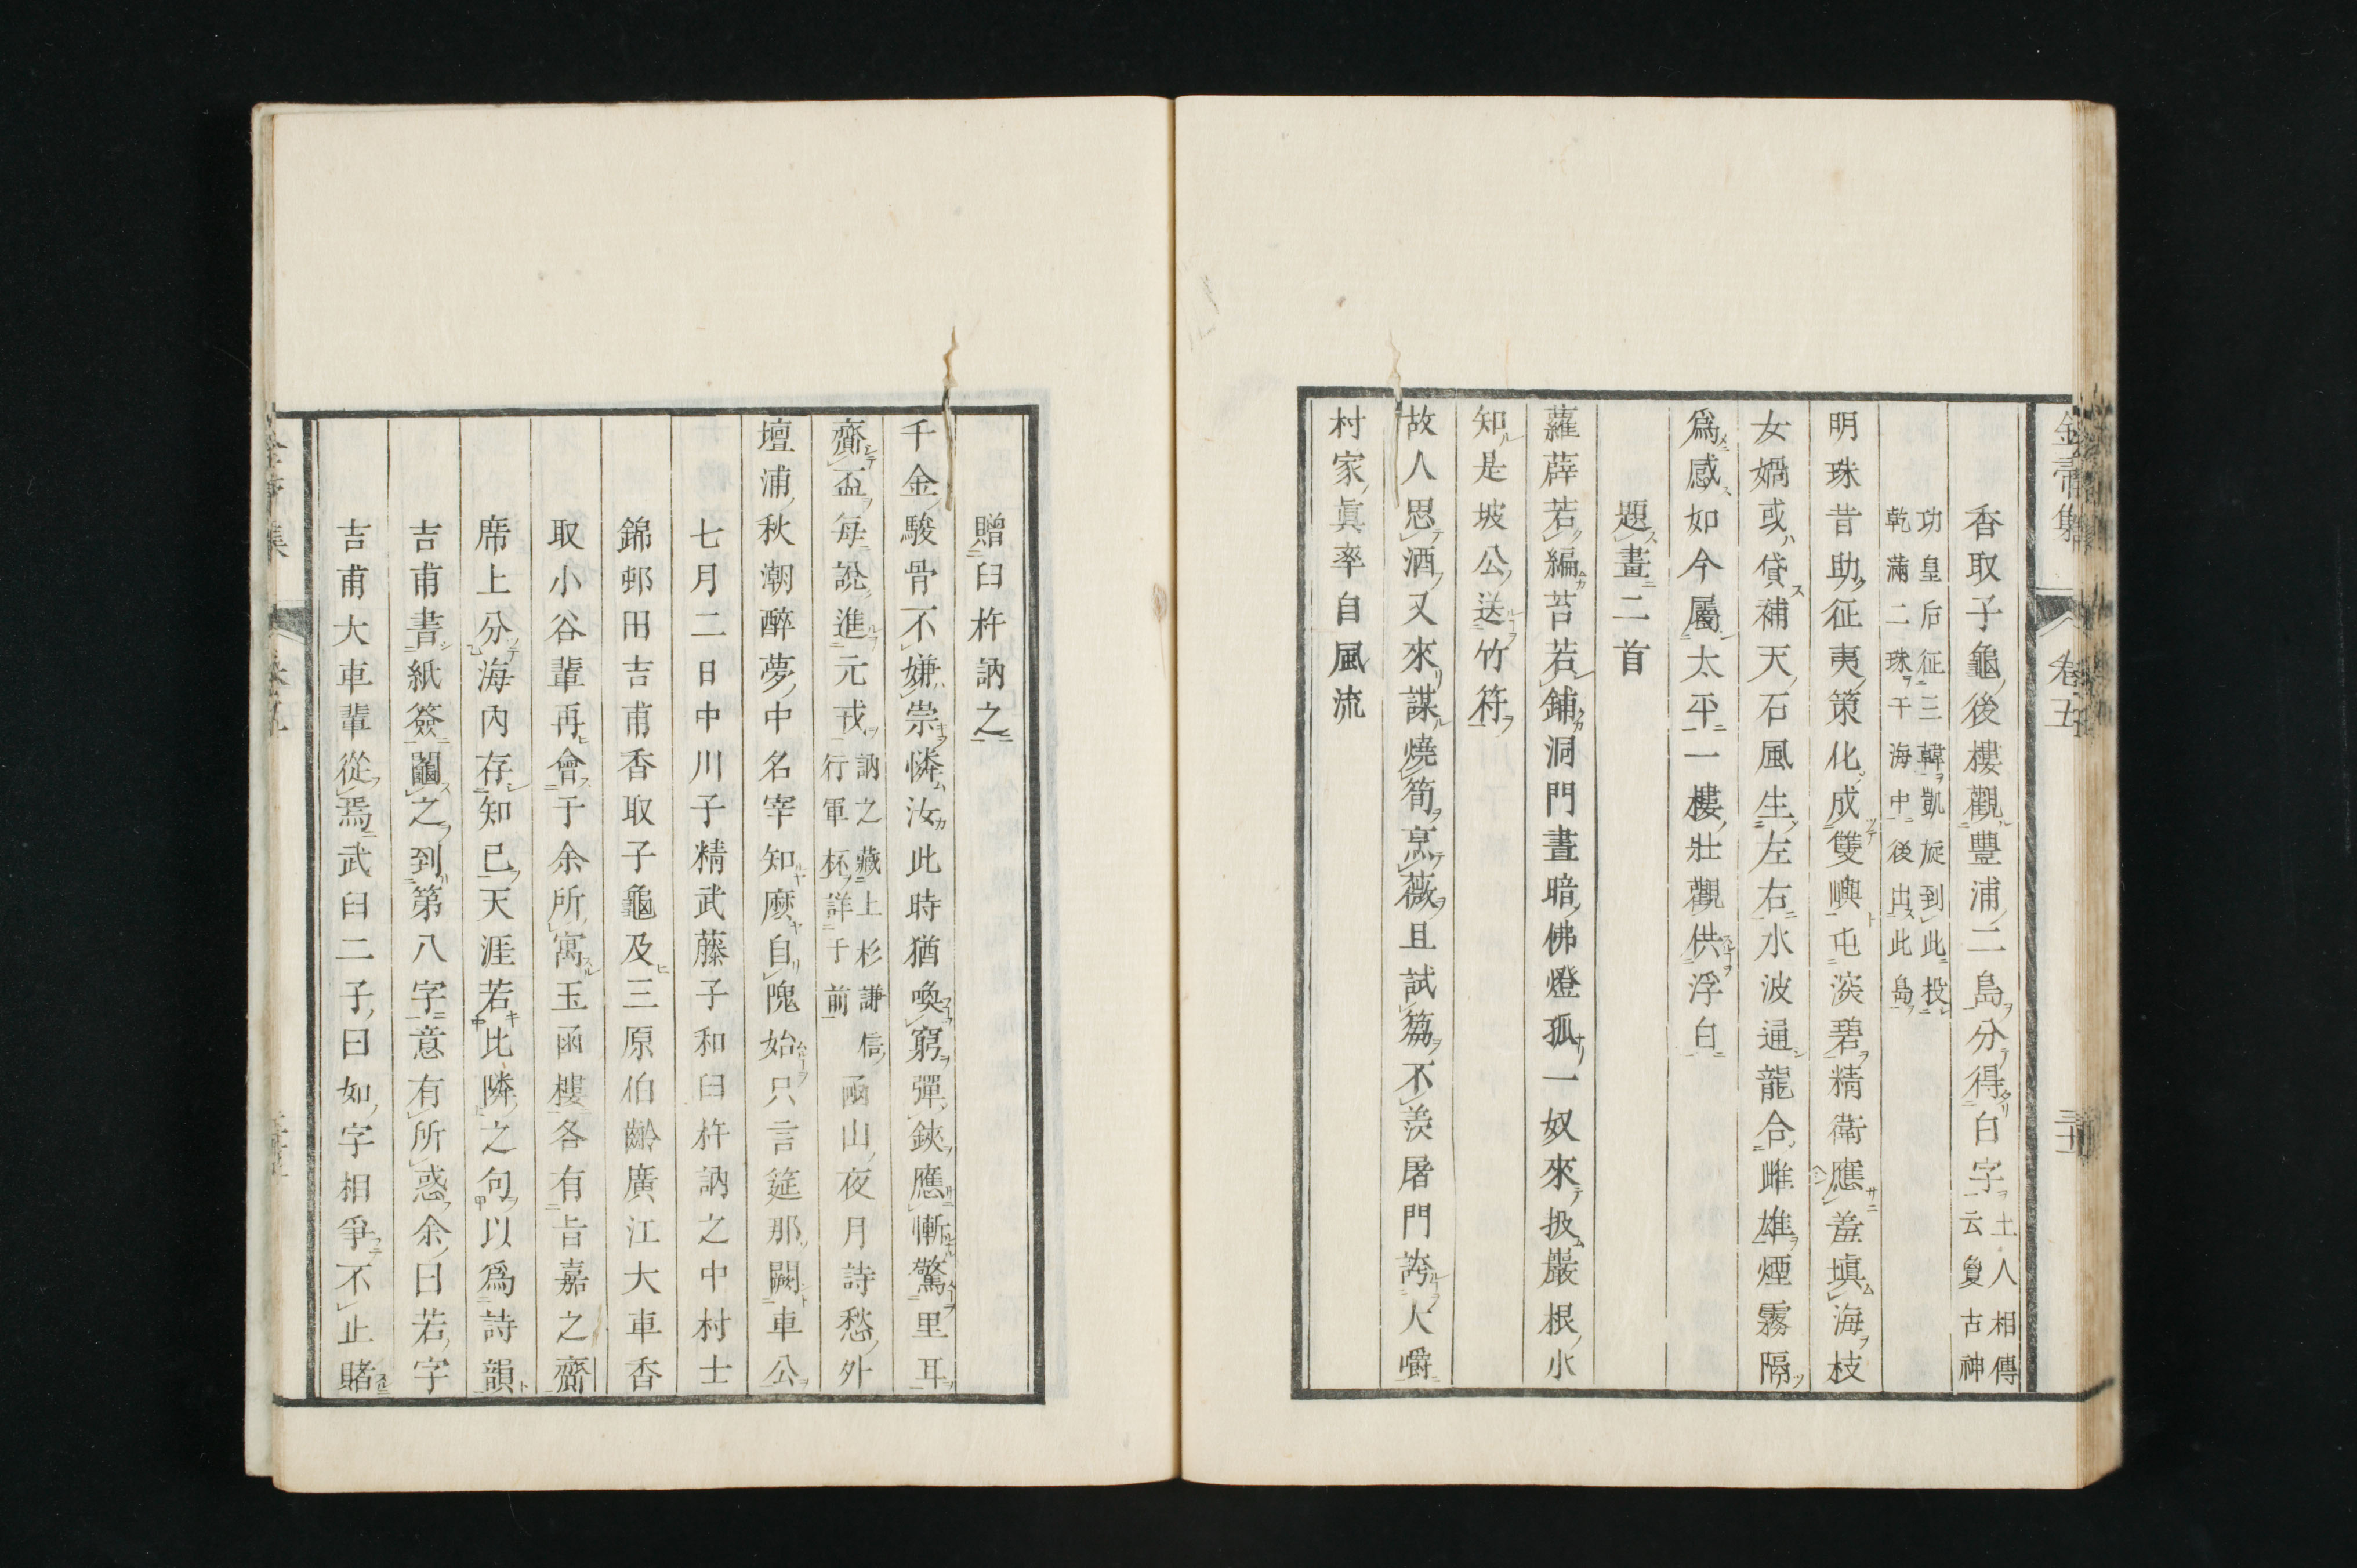 香取子龜後樓觀豐浦二島分得白字土人相傳云夐古神
功皇后征三韓凱旋到此投乾滿二珠于海中後出此島
明珠昔助征夷策化成雙嶼屯深碧精衞應羞塡海枝
女媧或貸補天石風生左右水波通龍合雌雄煙霧隔
爲感如今屬太平一樓壯觀供浮白
題畫二首
蘿薜若編苔若鋪洞門晝暗佛燈孤一奴來扱巖根水
知是坡公送竹符
故人思酒又來謀燒筍烹薇且試篘不羨屠門誇大嚼
村家眞率自風流
贈臼杵訥之
千金駿骨不嫌崇憐汝此時猶喚窮彈鋏應慚驚里耳
齎盃每說進元戎訥之藏上杉謙信行軍杯詳于前凾山夜月詩愁外
壇浦秋潮醉夢中名宰知麼自隗始只言筵那闕車公
七月二日中川子精武藤子和臼杵訥之中村士
錦邨田吉甫香取子龜及三原伯齡廣江大車香
取小谷輩再會于余所寓玉函樓各有旨嘉之齎
席上分海內存知己天涯若比隣之句以爲詩韻
吉甫書紙簽鬮之到第八字意有所惑余曰若字
吉甫大車輩從焉武臼二子曰如字相爭不止賭